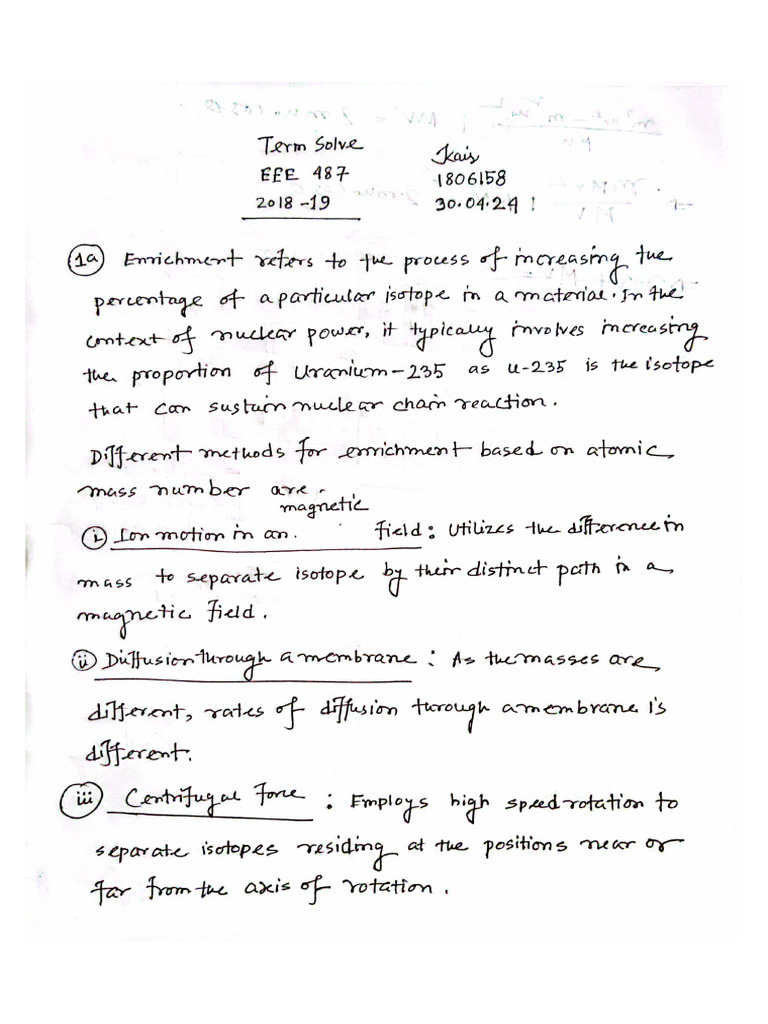 Term Solve
EEE 487
2018-19
Kais
1806158
30.04.24!
1a Enrichment refers to the process of increasing the
percentage of a particular isotope in a material. In the
context of nuclear power, it typically involves increasing
the proportion of Uranium-235 as U-235 is the isotope
that can sustain nuclear chain reaction.
Different methods for enrichment based on atomic
mass number are.
i Ion motion in an. magnetic field: Utilizes the difference in
mass to separate isotope by their distinct path in a
magnetic field.
ii Diffusion through a membrane: As the masses are
different, rates of diffusion through a membrane is
different.
iii Centrifugal Force: Employs high speed rotation to
separate isotopes residing at the positions near or
far from the axis of rotation.